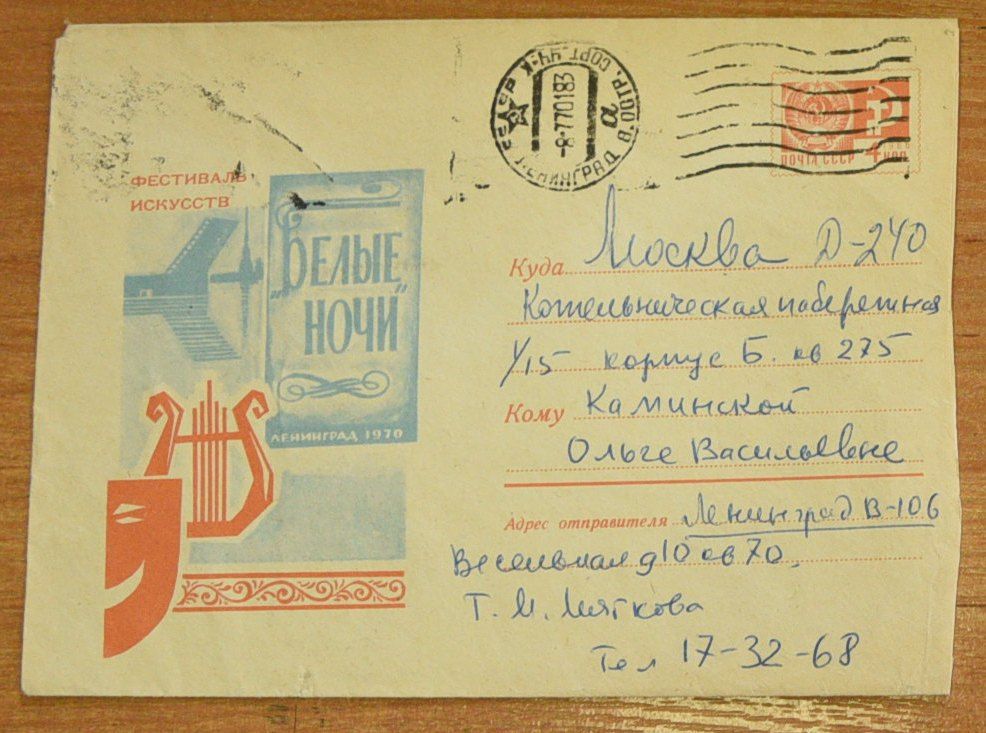 ФЕСТИВАЛЬ
ИСКУССТВ
„БЕЛЫЕ
НОЧИ"
ЛЕНИНГРАД 1970
ЛЕНИНГРАД
-8.770183
В.О. ОСТР. СОРТ. УЧ-К
а
ПОЧТА СССР 4 КОП
Куда Москва Д-240
Котельническая набережная
1/15 корпус Б. кв 275
Кому Каминской
Ольге Васильевне
Адрес отправителя Ленинград В-106
Весельная д 10 кв 70.
Т. И. Мягкова
Тел 17-32-68